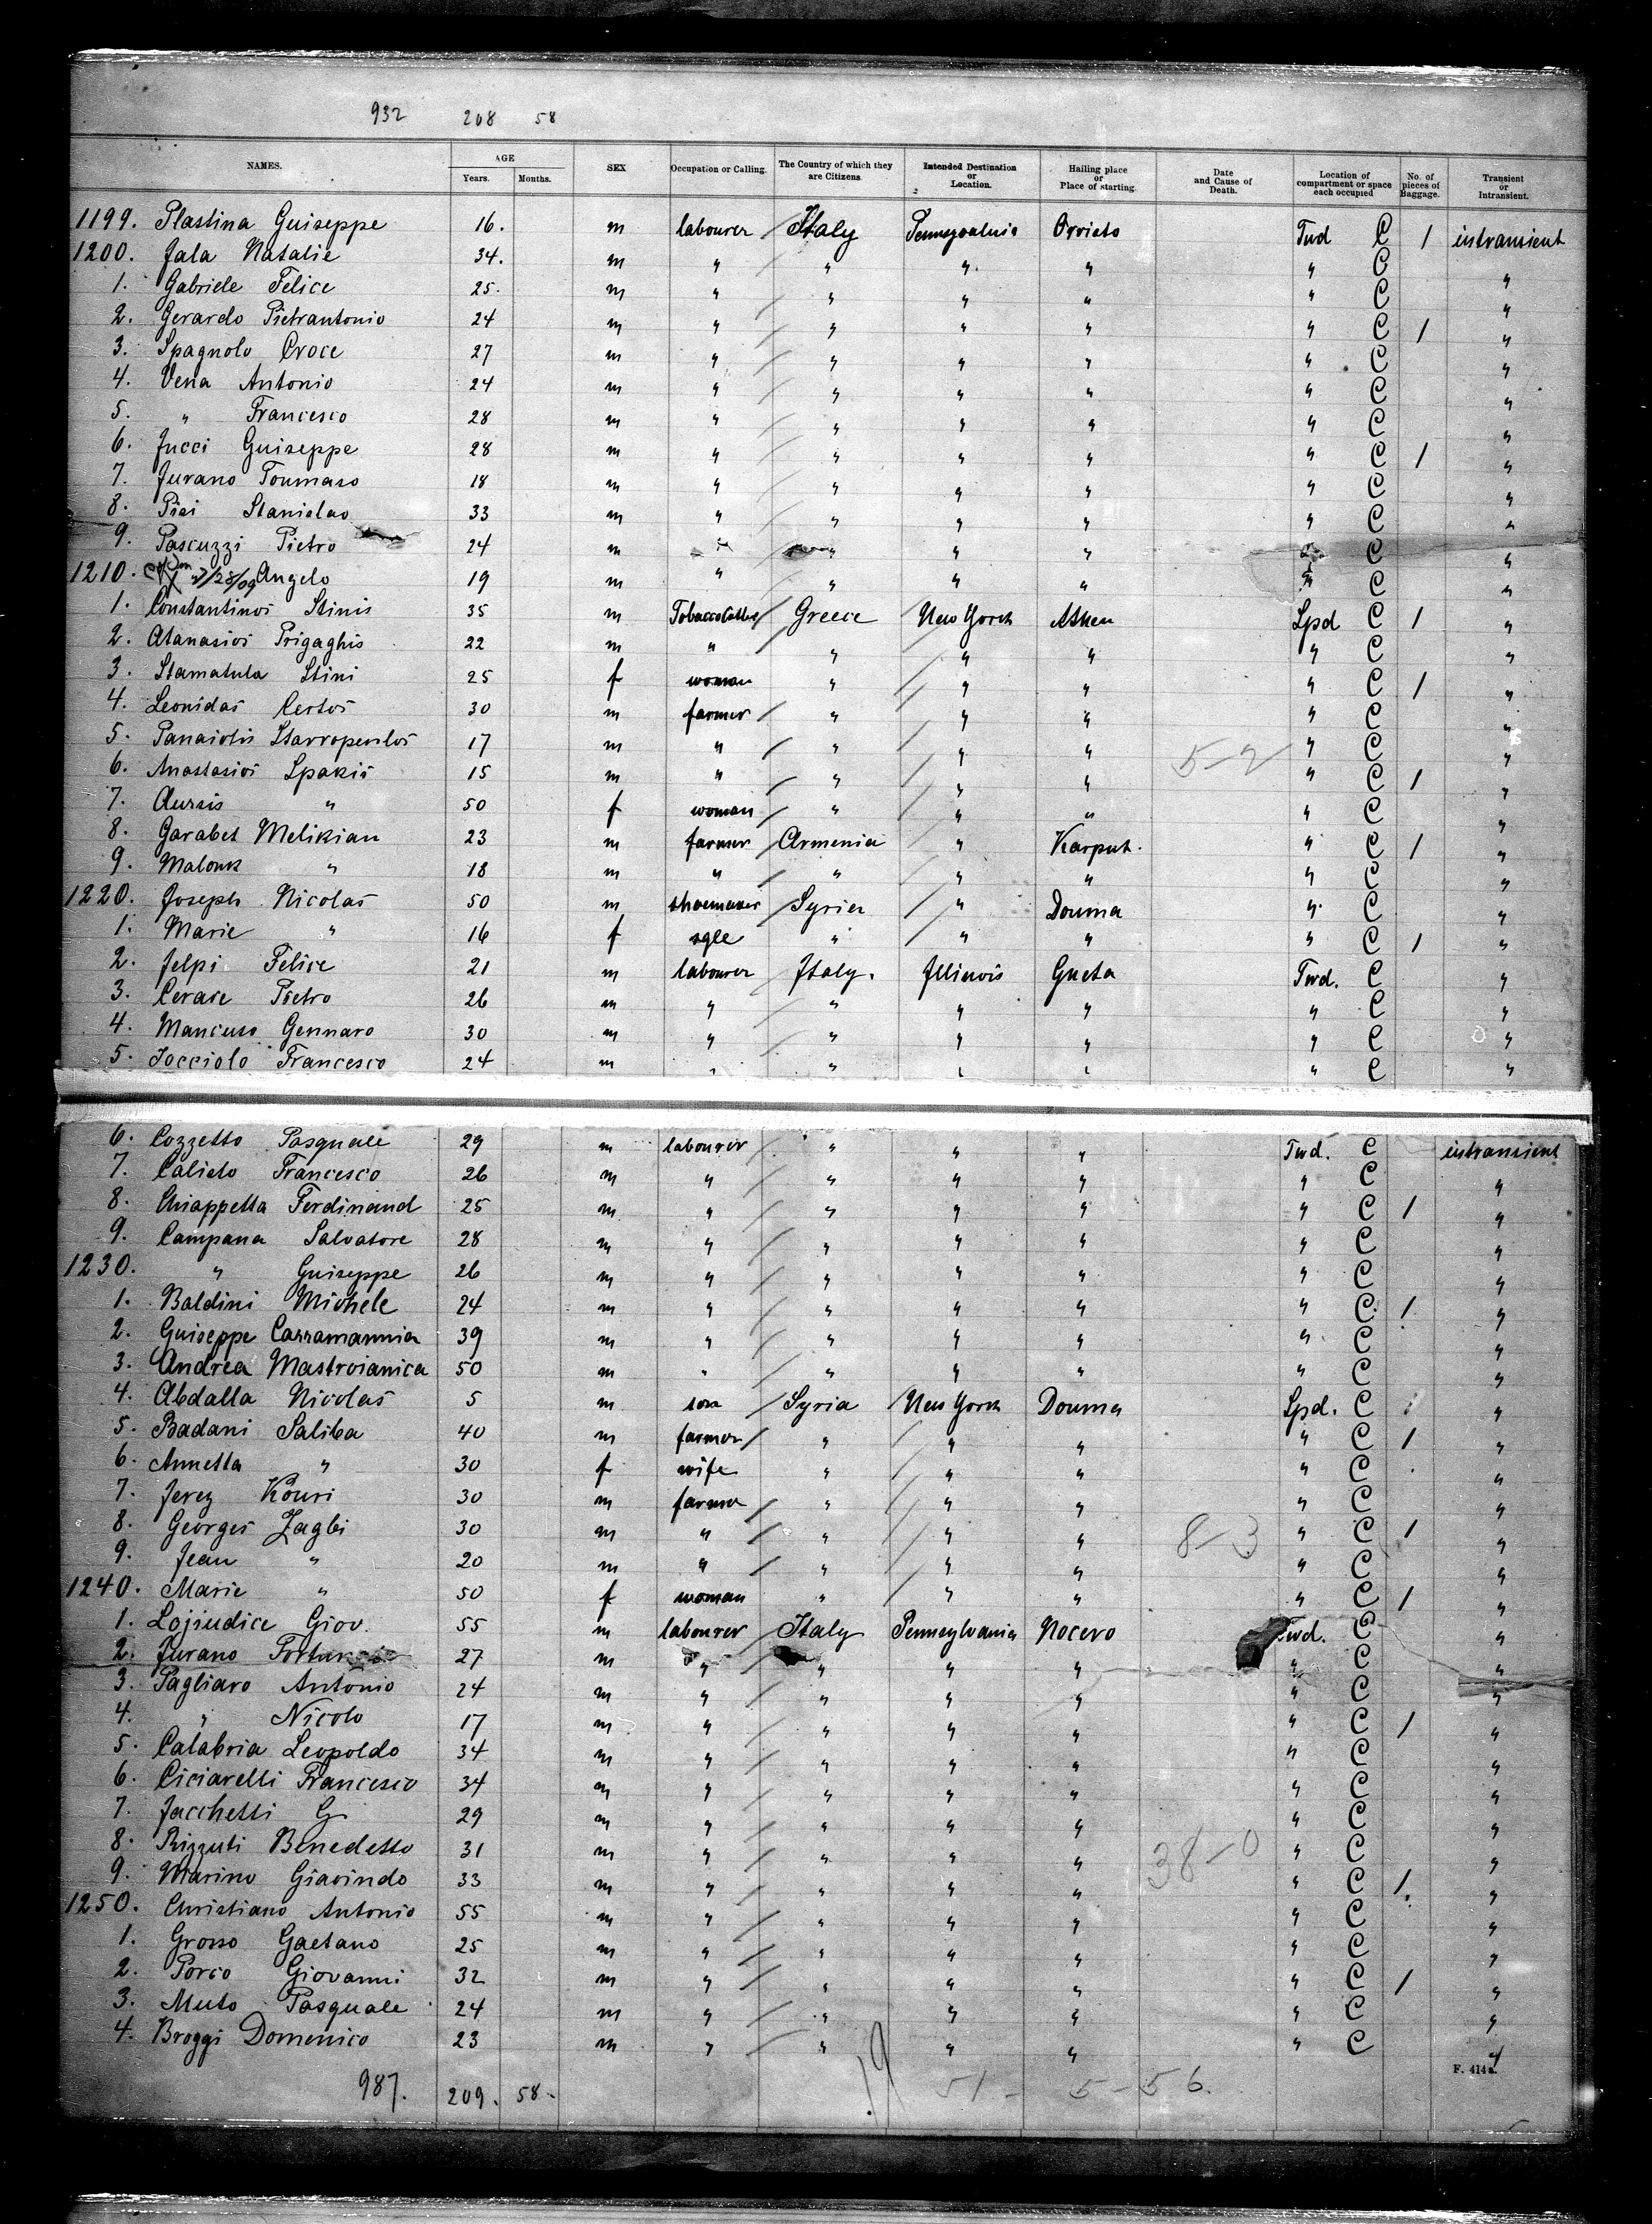 932 208 58
NAMES. AGE Years. Months. SEX Occupation or Calling. The Country of which they are Citizens. Intended Destination or Location. Hailing place or Place of starting. Date and Cause of Death. Location of compartment or space each occupied No. of pieces of Baggage. Transient or Intransient.
1199. Plastina Guiseppe 16. m labourer Italy Pennsylvania Orvieto Twd C 1 intransient
1200. Jala Natalie 34. m " " " " " C "
1. Gabriele Felice 25. m " " " " " C "
2. Gerardo Pietrantonio 24 m " " " " " C 1 "
3. Spagnolo Croce 27 m " " " " " C "
4. Vena Antonio 24 m " " " " " C "
5. " Francesco 28 m " " " " " C "
6. Jucci Guiseppe 28 m " " " " " C 1 "
7. Jurano Tommaso 18 m " " " " " C "
8. Pisi Stanislao 33 m " " " " " C "
9. Pascuzzi Pietro 24 m " " " " " C "
1210. Angelo 19 m " " " " " C "
1. Constantinos Stinis 35 m Greece New York Athen Spd C 1 "
2. Atanasios Prigaghis 22 m " " " " " C "
3. Stamatula Stini 25 f woman " " " " C 1 "
4. Leonidas Certos 30 m farmer " " " " C "
5. Panaiotis Stavropoulos 17 m " " " " 5-2 " C "
6. Anastasios Spakis 15 m " " " " " C 1 "
7. Aursis " 50 f woman " " " " C "
8. Garabet Melikian 23 m farmer Armenia " Karput. " C 1 "
9. Malouk " 18 m " " " " " C "
1220. Joseph Nicolas 50 m shoemaker Syrien " Douma " C "
1. Marie " 16 f sgle " " " " C 1 "
2. Jelpi Felice 21 m labourer Italy. Illinois Gaeta Twd. C "
3. Cerace Pietro 26 m " " " " " C "
4. Mancuso Gennaro 30 m " " " " " C "
5. Jocciolo Francesco 24 m " " " " " C "
6. Cozzetto Pasquale 29 m labourer " " " Twd. C intransient
7. Calisto Francesco 26 m " " " " " C "
8. Chiappetta Ferdinand 25 m " " " " " C 1 "
9. Campana Salvatore 28 m " " " " " C "
1230. " Guiseppe 26 m " " " " " C "
1. Baldini Michele 24 m " " " " " C 1 "
2. Guiseppe Carramannia 39 m " " " " " C "
3. Andrea Mastroianica 50 m " " " " " C "
4. Abdalla Nicolas 5 m son Syria New York Douma Spd. C "
5. Badani Saliba 40 m farmer " " " " C 1 "
6. Annetta " 30 f wife " " " " C "
7. Jerez Kouri 30 m farmer " " " " C "
8. Georges Zagbi 30 m " " " " 8-3 " C 1 "
9. Jean " 20 m " " " " " C "
1240. Marie " 50 f woman " " " " C 1 "
1. Lojiudice Giov. 55 m labourer Italy Pennsylvania Nocero Twd. C "
2. Jurano 27 m " " " " " C "
3. Pagliaro Antonio 24 m " " " " " C "
4. " Nicolo 17 m " " " " " C 1 "
5. Calabria Leopoldo 34 m " " " " " C "
6. Ciciarelli Francesco 34 m " " " " " C "
7. Jacchetti G. 29 m " " " " " C "
8. Rizzuti Benedetto 31 m " " " " 38-0 " C "
9. Marino Giacindo 33 m " " " " " C 1. "
1250. Christiano Antonio 55 m " " " " " C "
1. Grosso Gaetano 25 m " " " " " C "
2. Porco Giovanni 32 m " " " " " C 1 "
3. Muto Pasquale 24 m " " " " " C "
4. Broggi Domenico 23 m " " " " " C "
987. 209. 58. 19 51- 5-56. F. 414a.